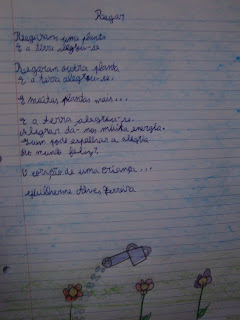 Regar
Regaram uma planta
E a terra alegrou-se
Regaram outra planta
E a terra alegrou-se.
E muitas plantas mais...
E a terra alegrou-se.
Alegrar dá-nos muita energia.
Quem pode espalhar a alegria
do mundo feliz?
O coração de uma criança...
Guilherme Alves Ferreira